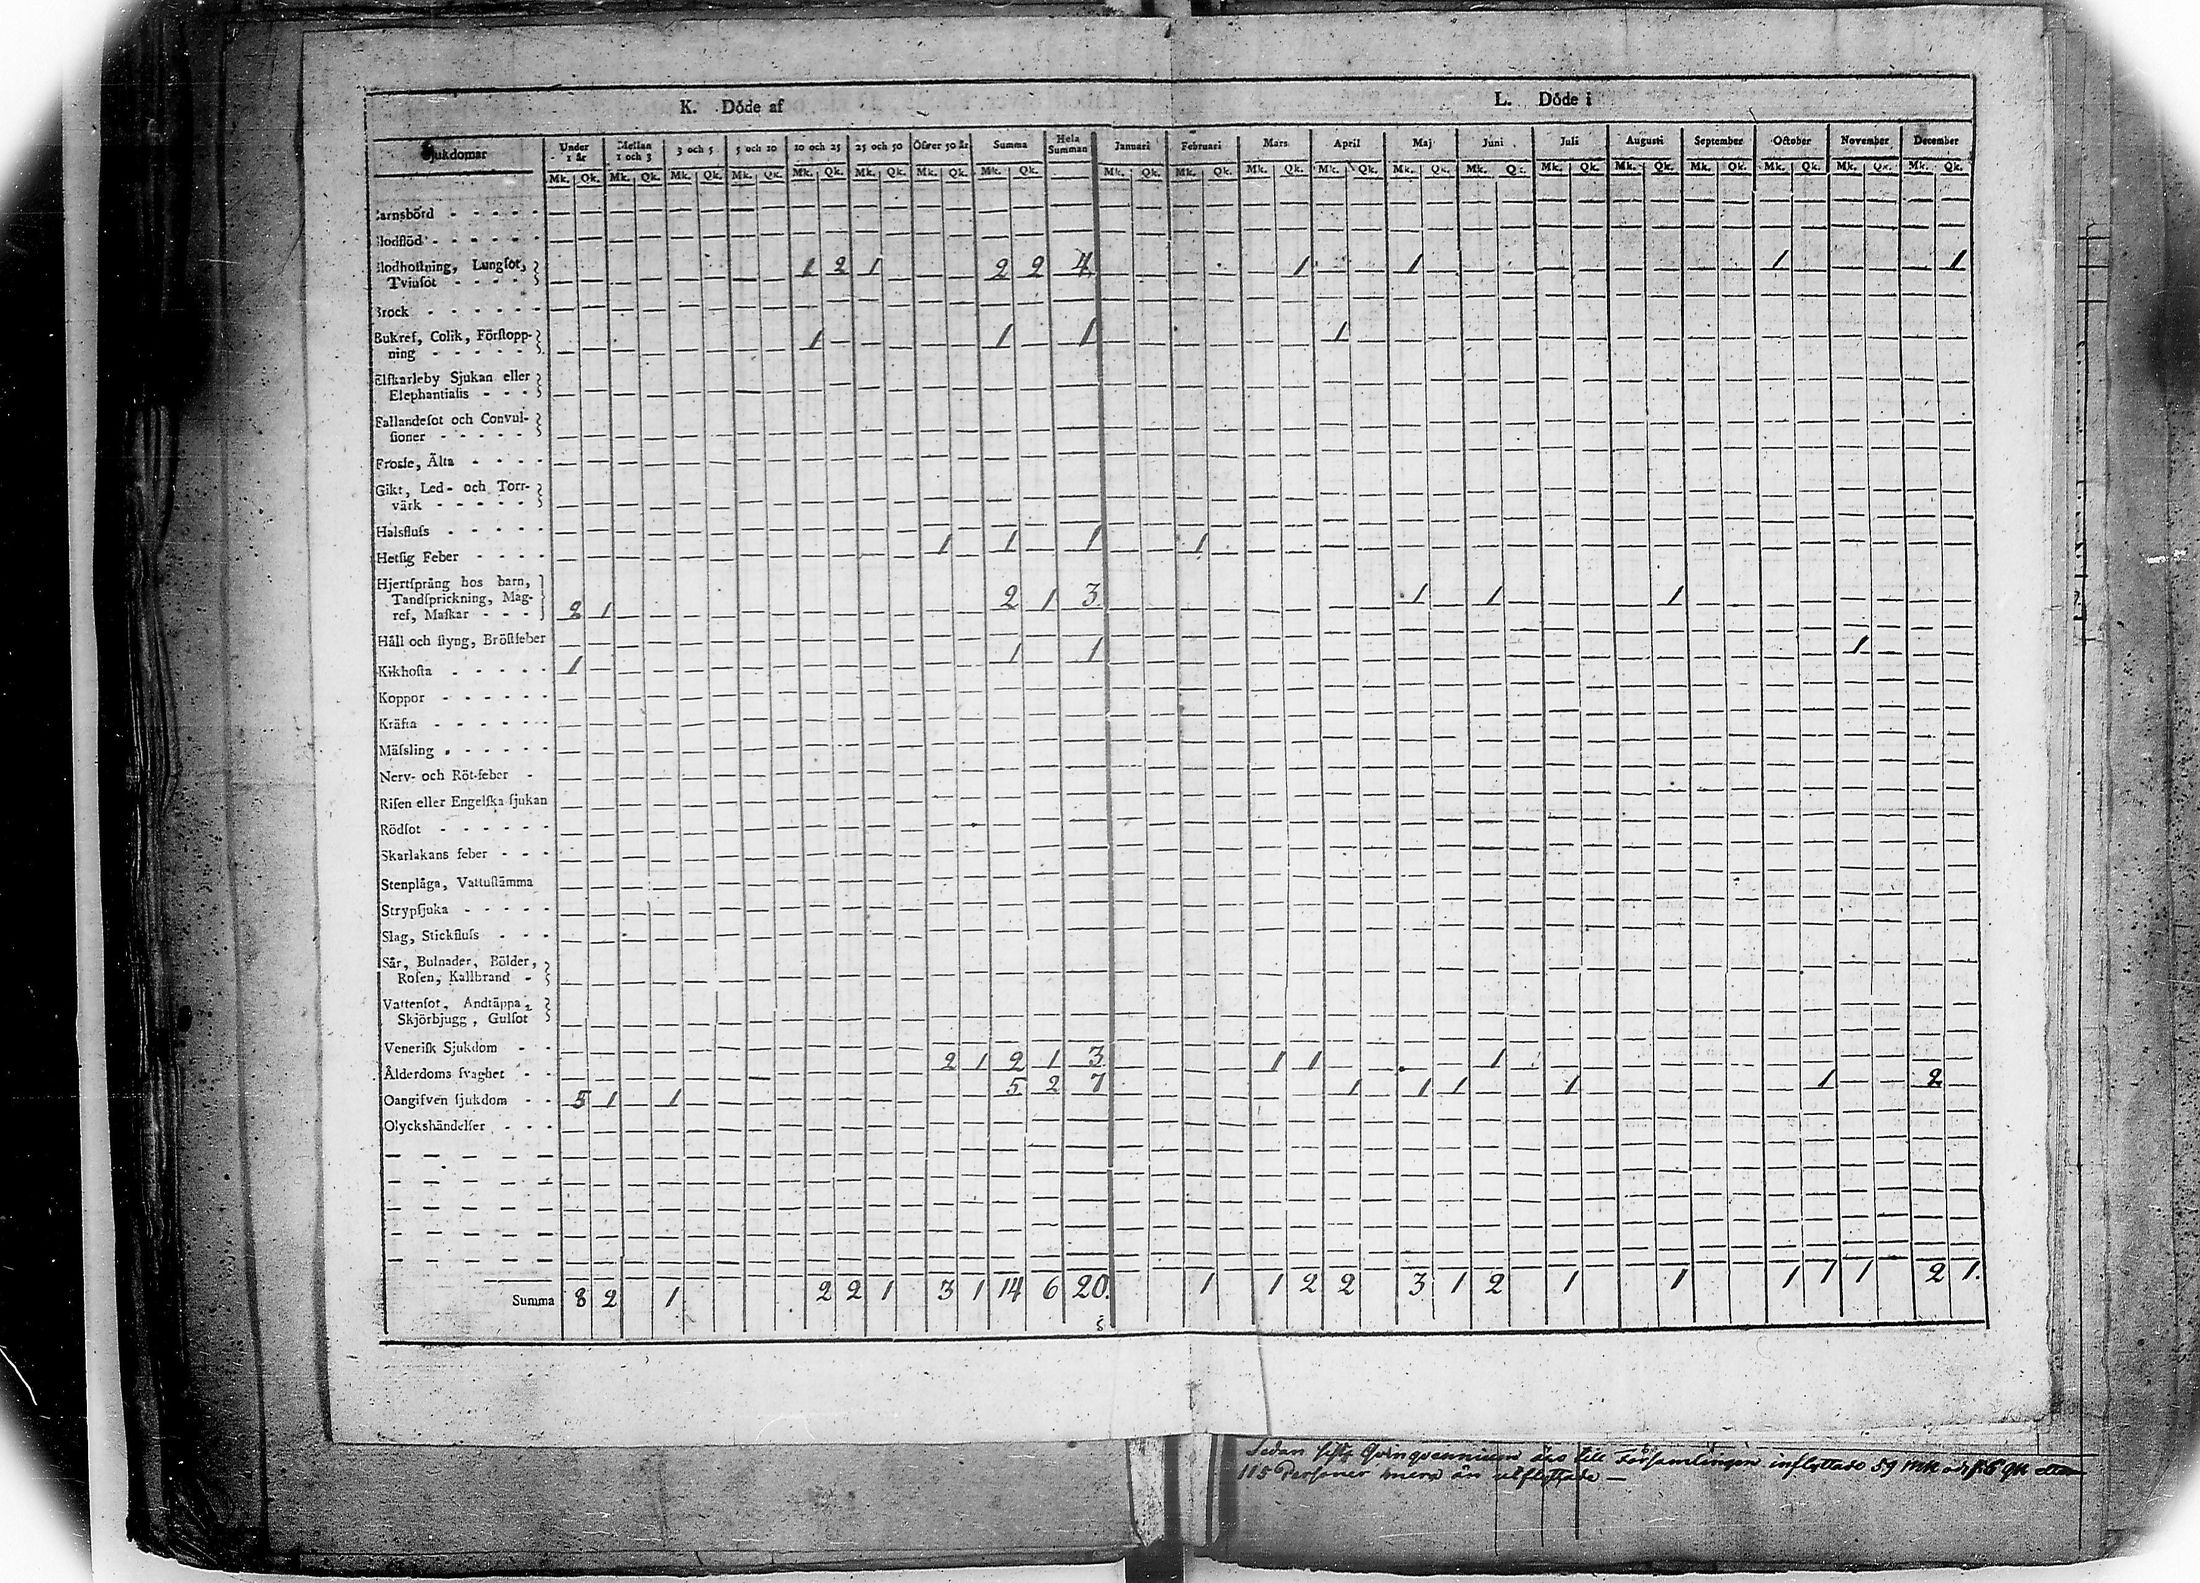 K. Döde af L. Döde i
Sjukdomar Under 1 år Mellan 1 och 3 3 och 5 5 och 10 10 och 25 25 och 50 Öfver 50 år Summa Hela Summan Januari Februari Mars April Maj Juni Juli Augusti September October November December
Mk. Qk. Mk. Qk. Mk. Qk. Mk. Qk. Mk. Qk. Mk. Qk. Mk. Qk. Mk. Qk. Mk. Qk. Mk. Qk. Mk. Qk. Mk. Qk. Mk. Qk. Mk. Qk. Mk. Qk. Mk. Qk. Mk. Qk. Mk. Qk. Mk. Qk. Mk. Qk.
arnsbörd
lodflöd
lodhostning, Lungsot, 2 1 2 2 4 1 1 1 1
Tvinsot
Brock
Bukref, Colik, Förstopp- 1 1 1 1
ning
Elfkarleby Sjukan eller
Elephantiasis
Fallandesot och Convul-
sioner
Frossa, Älta
Gikt, Led- och Torr-
värk
Halsfluss
Hetsig Feber 1 1 1 1
Hjertsprång hos barn,
Tandsprickning, Mag- 2 1 3 1 1 1
ref, Maskar 2 1
Håll och styng, Bröstfeber
Kikhosta 1 1 1 1
Koppor
Kräfta
Mässling
Nerv- och Röt-feber
Risen eller Engelska sjukan
Rödsot
Skarlakans feber
Stenplåga, Vattustämma
Strypsjuka
Slag, Stickfluss
Sår, Bulnader, Bölder,
Rosen, Kallbrand
Vattensot, Andtäppa,
Skjörbjugg, Gulsot
Venerisk Sjukdom
Ålderdoms svaghet 2 1 2 1 3 1 1 1
Oangifven sjukdom 5 1 1 5 2 7 1 1 1 1 1 2
Olyckshändelser
Summa 8 2 1 2 2 1 3 1 14 6 20. 1 1 2 2 3 1 2 1 1 1 1 1 2 1.
Sedan sista Qvinqvennium äro till Församlingen inflyttade 59 Mk och Qk
115 Personer mera än utflyttade —